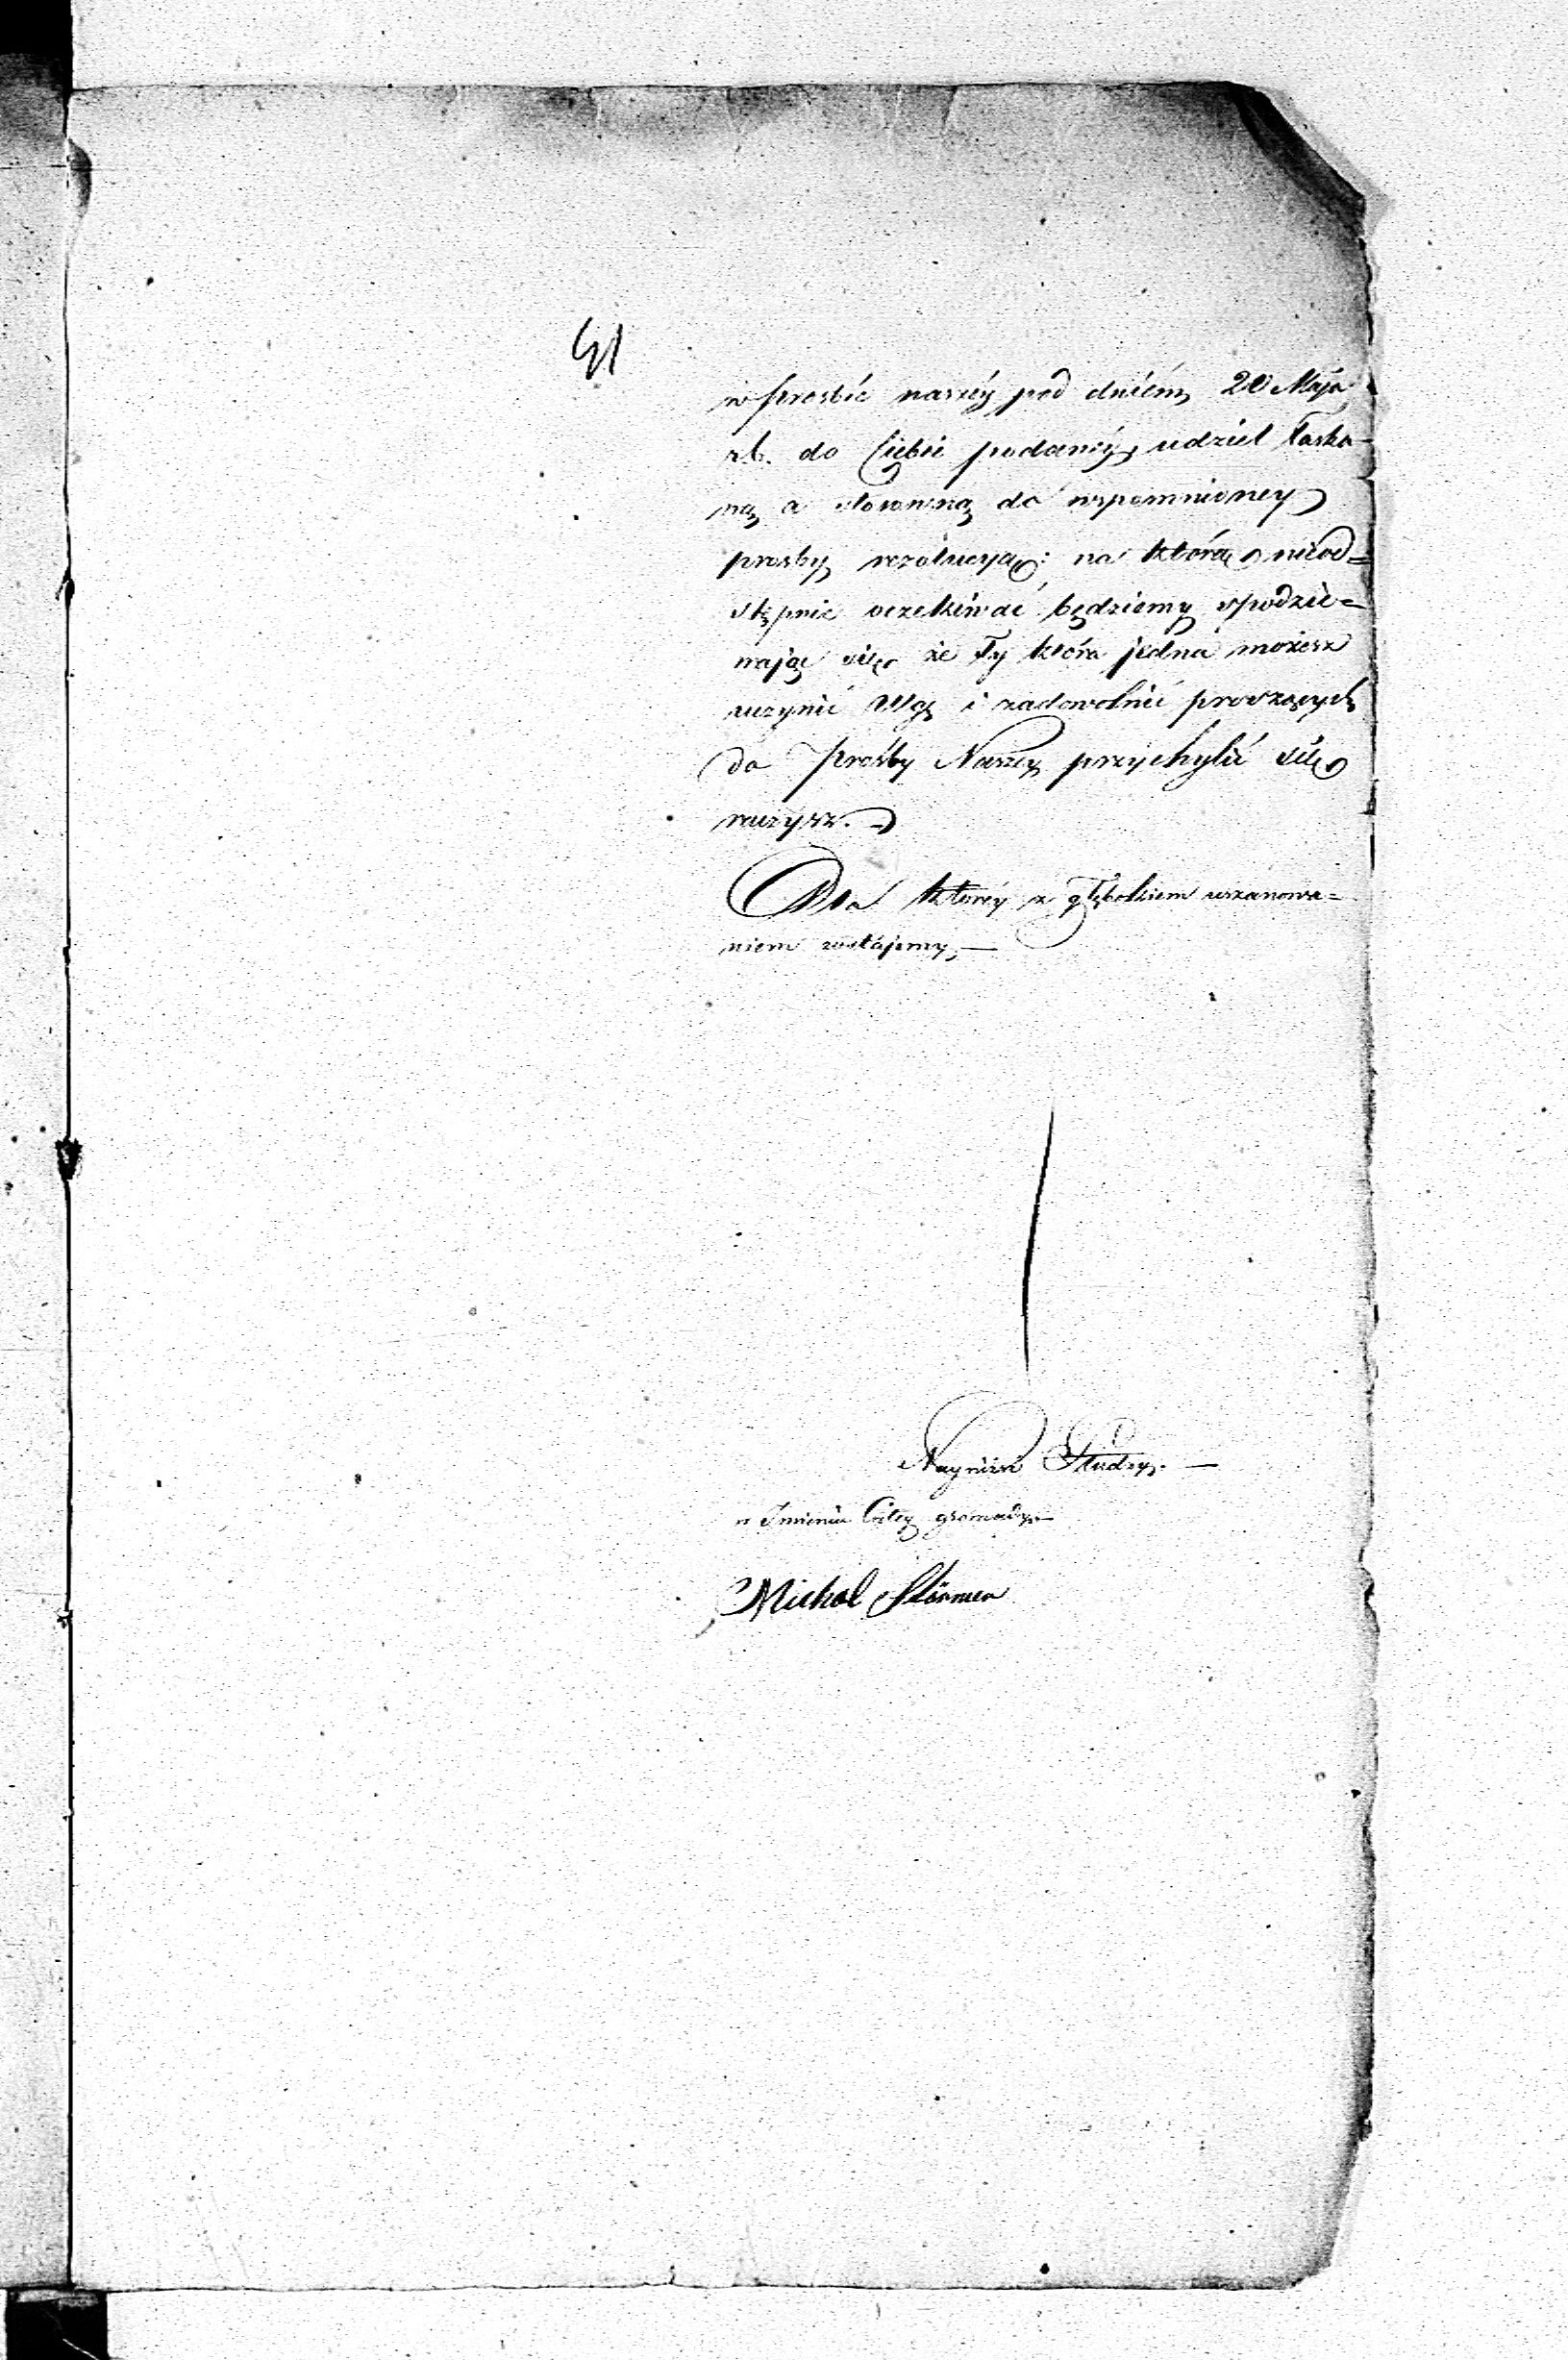 41
w prosbie naszéy pod dniém 20 Maja
r.b. do Ciebie podanéy, udziel Łaska-
ną a stosowną do wspomnioney
prosby rezolucyą: na którą nieod=
stępnie oczekiwać będziemy spodzie=
wając się że Ty która jedna możesz
uczynić Ulgę i zadowolnić proszących
do Prośby Naszey przychylić się
raczysz. —
Dla któréy z głębokiem uszanowa=
niem zostajemy, —
Nayniżsi Słudzy. —
w Imieniu Całey gromady —
Michal